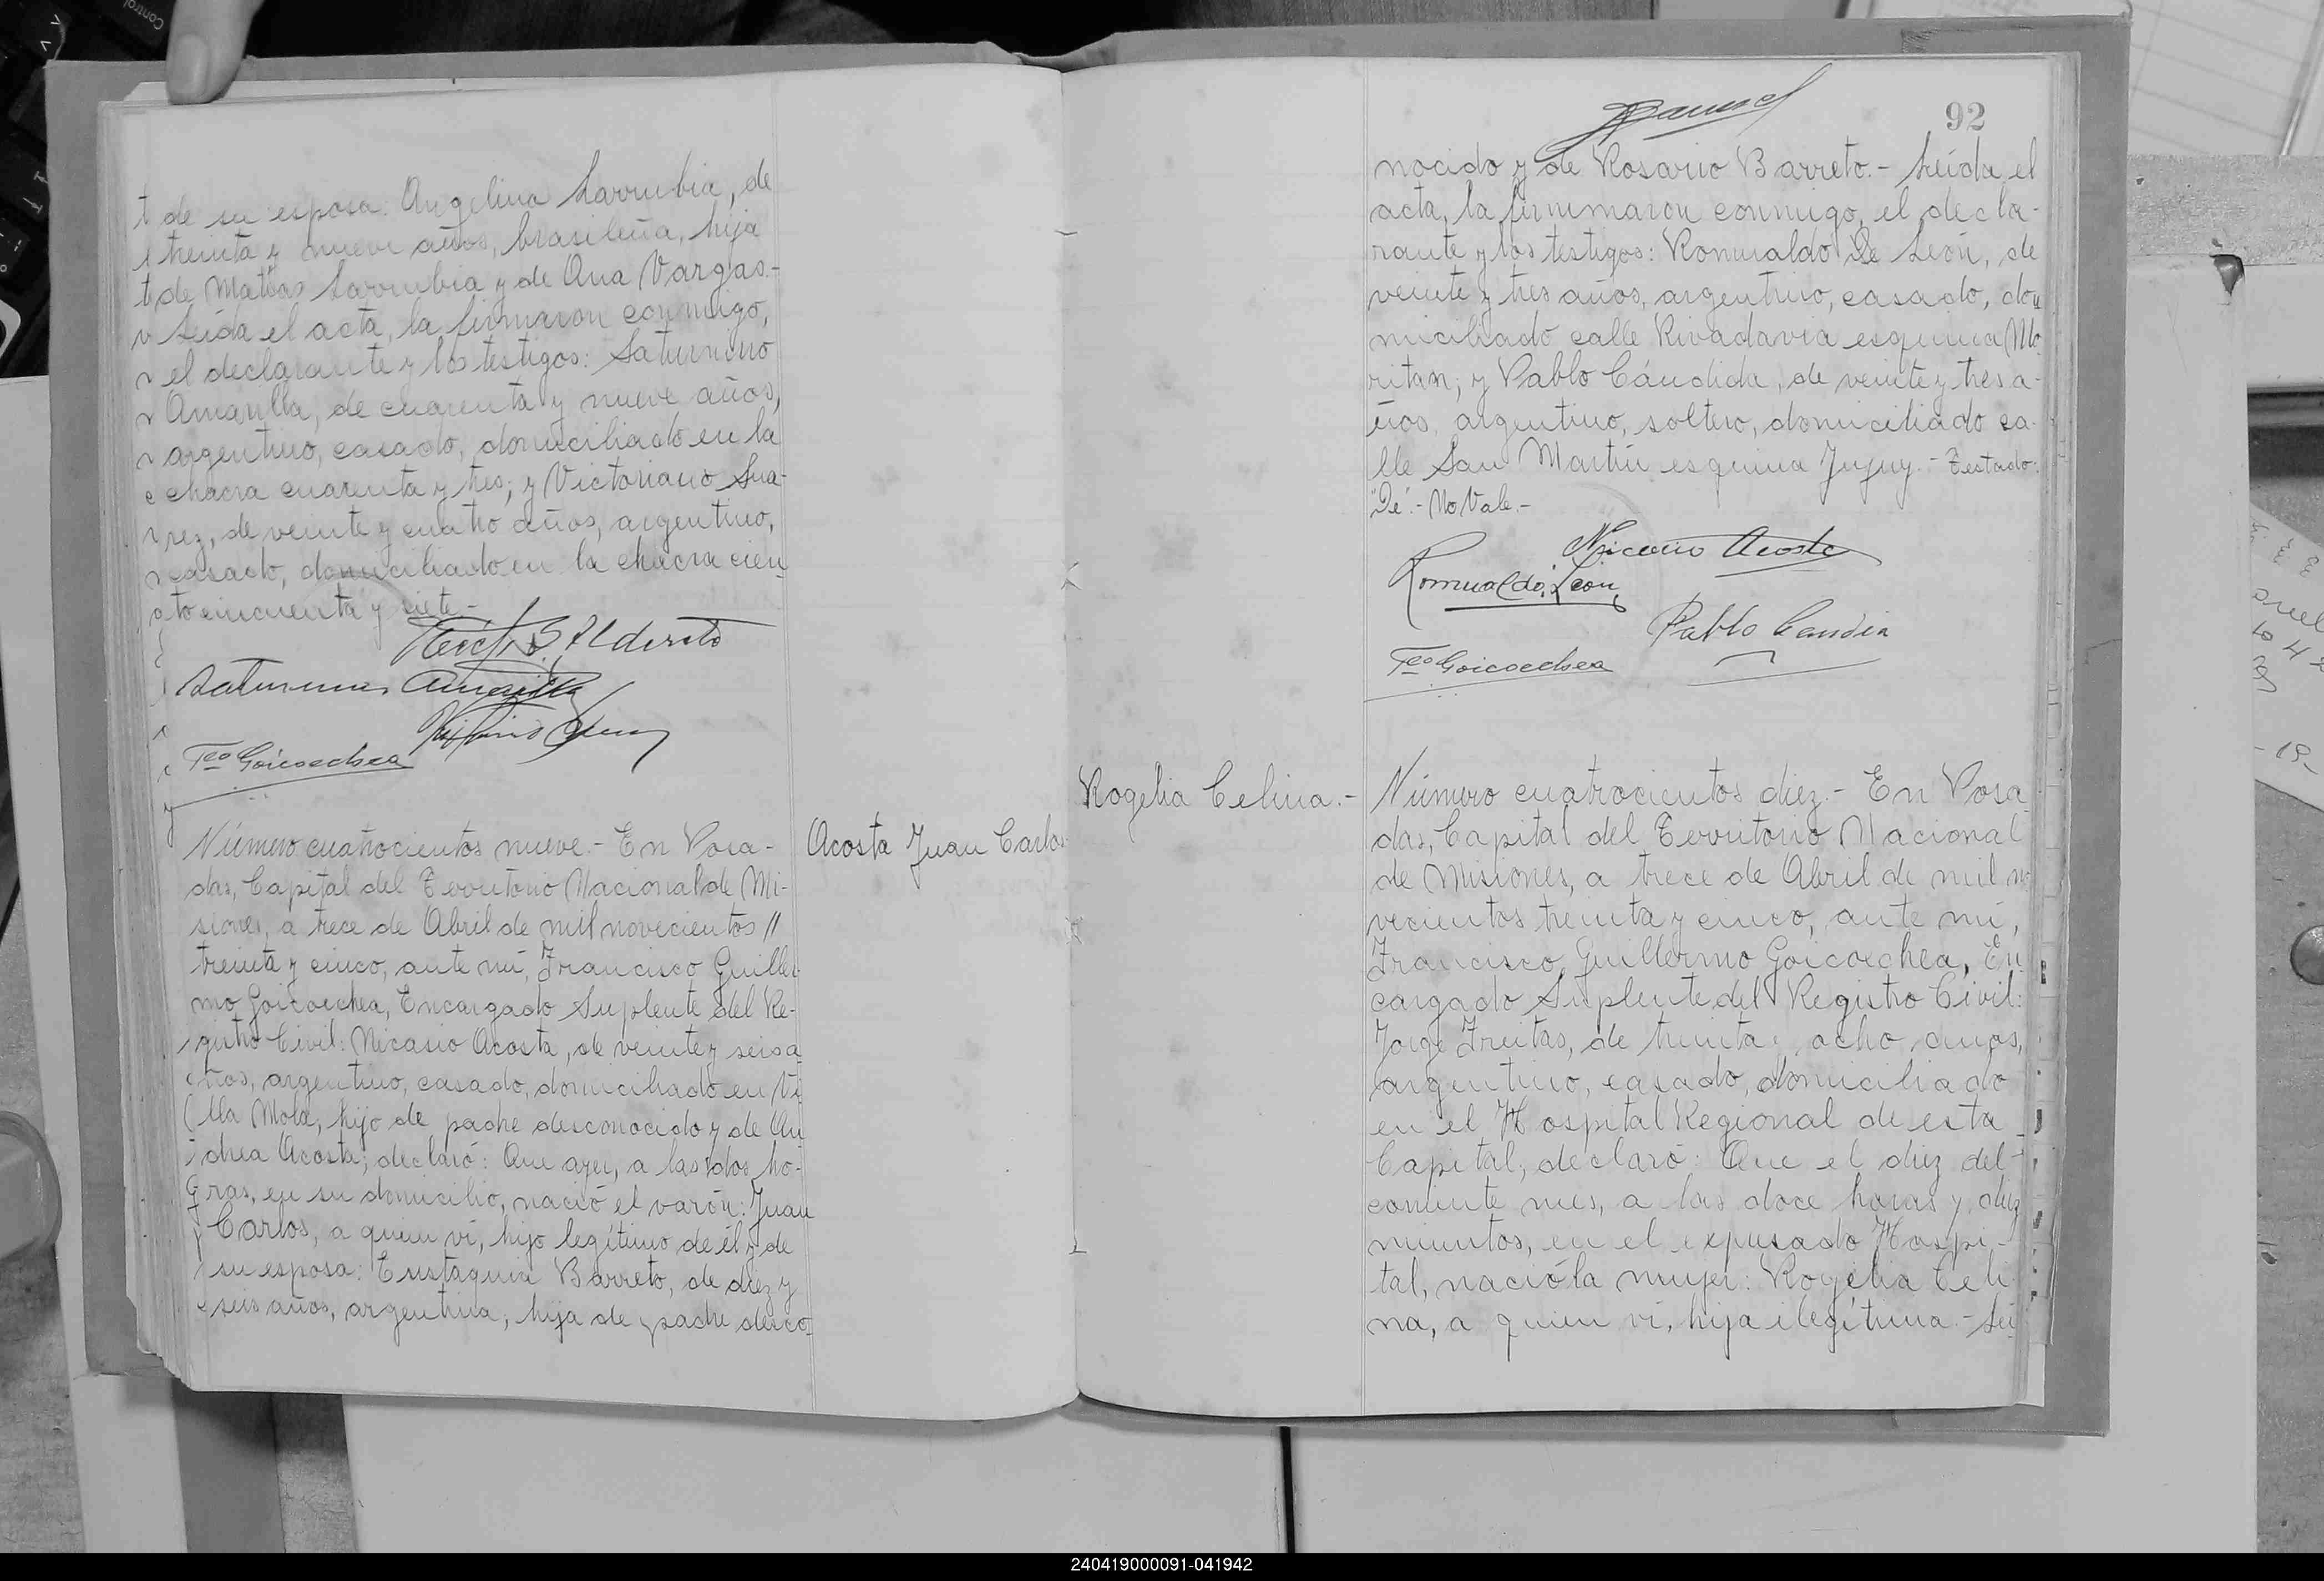 de su esposa: Angelina Larrubia, de
treinta y nueve años, brasileña, hija
de Matías Larrubia y de Ana Vargas.-
Leída el acta, la firmaron conmigo,
el declarante y los testigos: Saturnino
Amarilla, de cuarenta y nueve años,
argentino, casado, domiciliado en la
chacra cuarenta y tres; y Victoriano Sua-
rez, de veinte y cuatro años, argentino,
casado, domiciliado en la chacra cien
to cincuenta y siete.-
Saturnino Amarilla
Fco Goicoechea
Número cuatrocientos nueve.- En Posa-
das, Capital del Territorio Nacional de Mi-
siones, a trece de Abril de mil novecientos //
treinta y cinco, ante mí, Francisco Guiller-
mo Goicoechea, Encargado Suplente del Re-
gistro Civil: Nicasio Acosta, de veinte y seis a
ños, argentino, casado, domiciliado en Vi
lla Mola, hijo de padre desconocido y de An
drea Acosta; declaró: Que ayer, a las dos ho-
ras, en su domicilio, nació el varón: Juan
Carlos, a quien ví, hijo legítimo de él y de
su esposa: Eustaquia Barreto, de diez y
seis años, argentina, hija de padre desco-
Acosta Juan Carlos
92
nocido y de Rosario Barreto.- Leída el
acta, la firmaron conmigo, el decla-
rante y los testigos: Romualdo De León, de
veinte y tres años, argentino, casado, do
miciliado calle Rivadavia esquina
y Pablo Cándida, de veinte y tres a-
ños, argentino, soltero, domiciliado ca-
lle San Martín esquina Jujuy.- Testado:
"De".- No Vale.-
Nicasio Acosta
Romualdo Leon
Pablo Candia
Fco Goicoechea
Rogelia Celina.-
Número cuatrocientos diez.- En Posa
das, Capital del Territorio Nacional
de Misiones, a trece de Abril de mil no
vecientos treinta y cinco, ante mí,
Francisco Guillermo Goicoechea, En
cargado Suplente del Registro Civil:
Jorge Freitas, de treinta y ocho años,
argentino, casado, domiciliado
en el Hospital Regional de esta
Capital; declaró: Que el diez del
corriente mes, a las doce horas y diez
minutos, en el expresado Hospi-
tal, nació la mujer: Rogelia Celi
na, a quien ví, hija ilegítima.- Leí
240419000091-041942